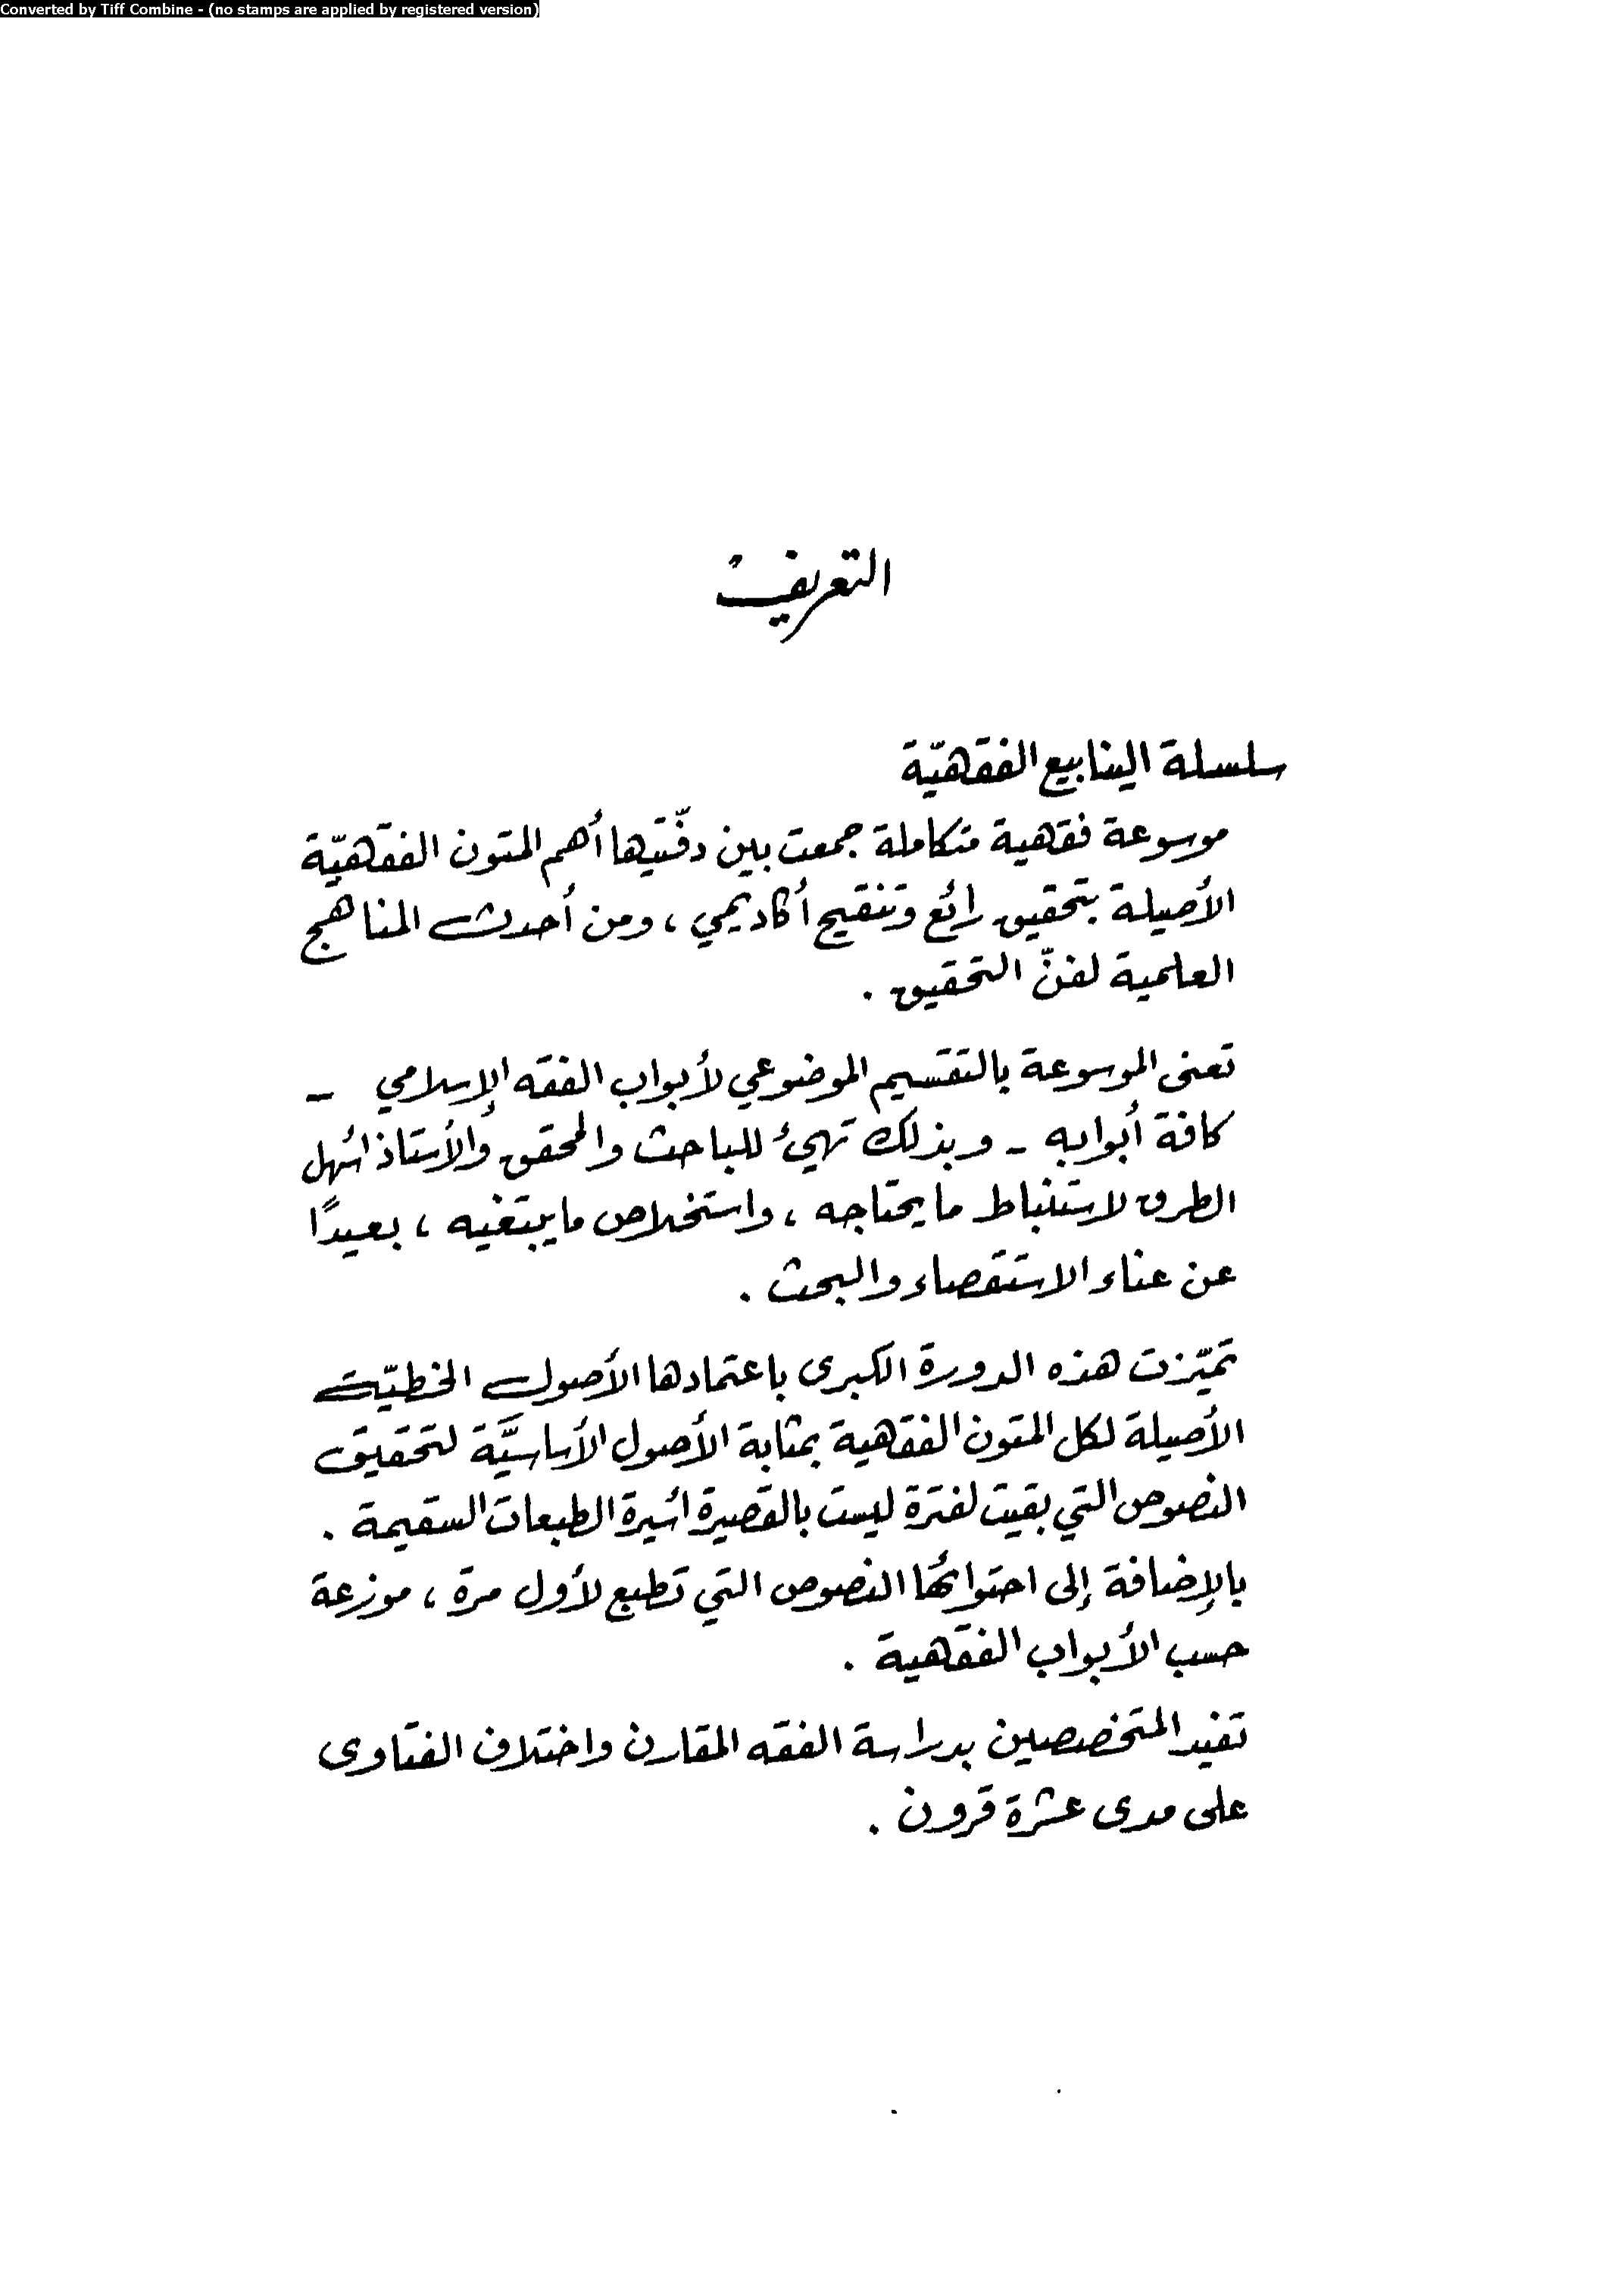 Converted by Tiff Combine - (no stamps are applied by registered version)
التعريف
سلسلة الينابيع الفقهيّة
موسوعة فقهية متكاملة جمعت بين دفّتيها أهم المتون الفقهيّة
الأصيلة بتحقيق رائع وتنقيح أكاديمي ، ومن أحدث المناهج
العلمية لفنّ التحقيق .
تعنى الموسوعة بالتقسيم الموضوعي لأبواب الفقه الإسلامي -
كافة أبوابه - وبذلك تهيئ للباحث والمحقق والأستاذ أسهل
الطرق لاستنباط ما يحتاجه ، واستخلاص ما يبتغيه ، بعيداً
عن عناء الاستقصاء والبحث .
تميّزت هذه الدورة الكبرى باعتمادها الأصول الخطيّة
الأصيلة لكل المتون الفقهية بمثابة الأصول الأساسيَّة لتحقيق
النصوص التي بقيت لفترة ليست بالقصيرة أسيرة الطبعات السقيمة .
بالإضافة إلى احتوائها النصوص التي تطبع لأول مرة ، موزعة
حسب الأبواب الفقهية .
تفيد المتخصصين بدراسة الفقه المقارن واختلاف الفتاوى
على مدى عشرة قرون .